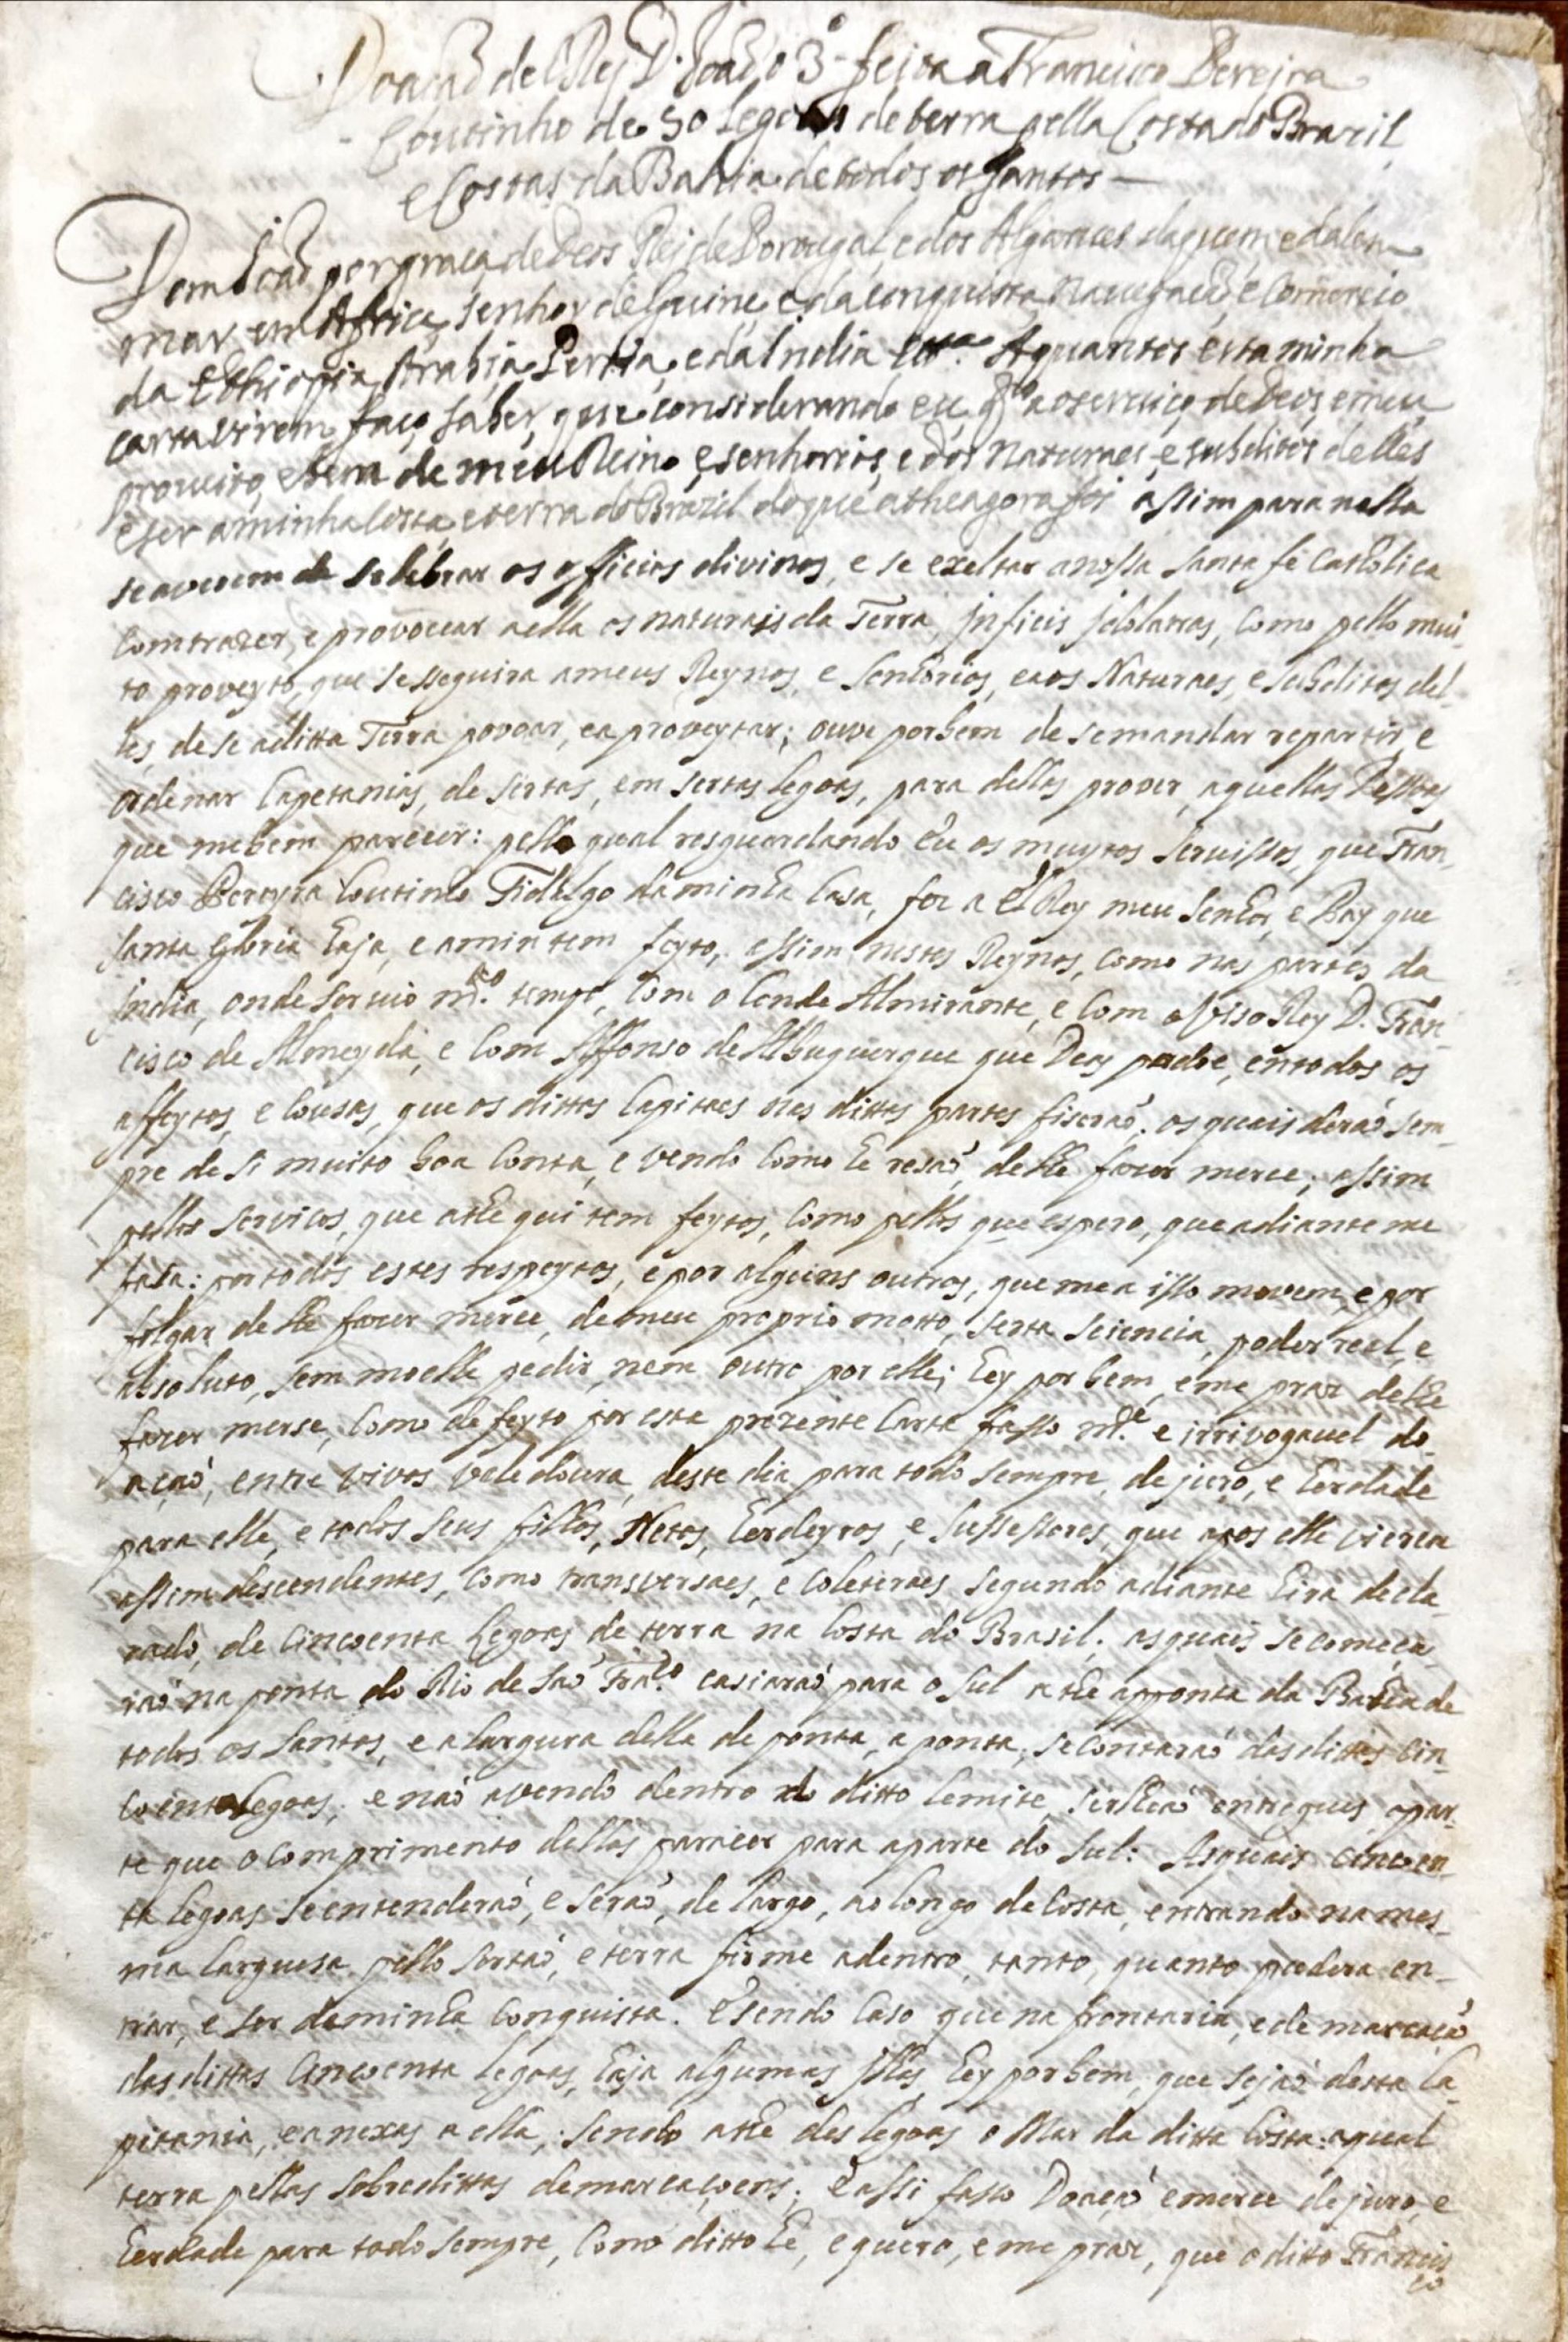 Doaçaõ del Rey D. Joaõ o 3º feita a Francisco Pereira
Coutinho de 50 legoas de terra pella Costa do Brazil,
e Costas da Bahia de todos os Santos —
Dom Joaõ por graça de Deos Rej de Portugal, e dos Algarves daquem, e dalem
mar em Africa, senhor de Guine, e da conquista, navegaçaõ, e Comercio
da Ethiopia, Arabia, Persia, e da India &tc.ª A quantos esta minha
carta virem faço saber, que considerando eu, q.to a o serviço de Deos, e meu
proueito, e bem de meu Reino, e senhorios, e dos naturaes, e subditos delles
e ser a minha Costa, e terra do Brazil do que athe agora foi assim para nella
se averem de selebrar os officios divinos, e se exeltar a nossa santa fé Catholica
com trazer, e provocar a ella os naturais da Terra, jnfieis jdolatras, como pello mui-
to proveyto, que se sseguira a meus Reynos, e senhorios, e aos Naturaes, e subditos del-
les, de se a ditta Terra povoar, e a proveytar; ouve por bem de se mandar repartir, e
ordenar Capetanias, de sertas, em sertas legoas, para dellas prover, aquellas Pessoas
que me bem parecer: pello qual resguardando Eu os muytos servissos, que Fran-
cisco Pereyra Coutinho Fidalgo da minha Casa, fez a El Rey meu senhor, e Pay que
santa Gloria haja, e a mim tem feyto, assim nestes Reynos, como nas partes da
jndia, onde servio m.to tempo, com o Conde Almirante, e com o Viso Rey D. Fran-
cisco de Almeyda, e com Affonso de Albuquerque que Deos perdoe, en todos os
affeytos, e cousas, que os dittos Capitaes nas dittas partes fiseraõ; os quais deraõ sem-
pre de si muito boa Conta, e vendo como he resaõ, de lhe fazer merce; assim
pellos servicos, que athe qui tem feytos, como pellos que espero, que adiante me
fasa: por todos estes respeytos, e por alguns outros, que me a isso movem, e por
folgar de lhe fazer merce, de meu proprio motto, serta sciencia, poder real, e
absoluto, sem mo elle pedir, nem outro por elle; hey por bem, e me praz de lhe
fazer merse, como de feyto por esta prezente Carta fasso m.ce e irrivogavel do-
açaõ, entre vivos valedoura, deste dia para todo sempre, de juro, e herdade
para elle, e todos seus filhos, Netos, herdeyros, e sussessores, que apos elle vierem
assim descendentes, como transversaes, e coleteraes segundo adiante hira decla-
rado, de Cincoenta legoas de terra na Costa do Brasil; as quais se começa-
raõ na ponta do Rio de Saõ Fra.co e asiaraõ para o sul athe a pponta da Bahia de
todos os santos, e a largura della de ponta, a ponta, se contaraõ das dittas Cin-
coenta legoas; e naõ avendo dentro do ditto lemite, ser lheaõ entregues, a par-
te que o comprimento dellas paracer para a parte do sul: As quais cincoen-
ta legoas se entenderaõ, e seraõ, de largo, ao longo de Costa, entrando na mes-
ma larguesa, pello sertaõ, e terra firme adentro, tanto, quanto poderá en-
trar, e ser da minha Conquista. E sendo Caso que na frontaria, e de marcaçaõ
das dittas Cincoenta legoas, haja algumas Jlhas, hey por bem, que sejaõ desta Ca-
petania, e anexas a ella, sendo athe des legoas o Mar da ditta Costa: a qual
terra pellas sobredittas demarcaçoens; E assi fasso Doaçaõ e merce de juro, e
herdade para todo sempre, Como ditto he, e quero, e me praz, que o ditto Francis
co